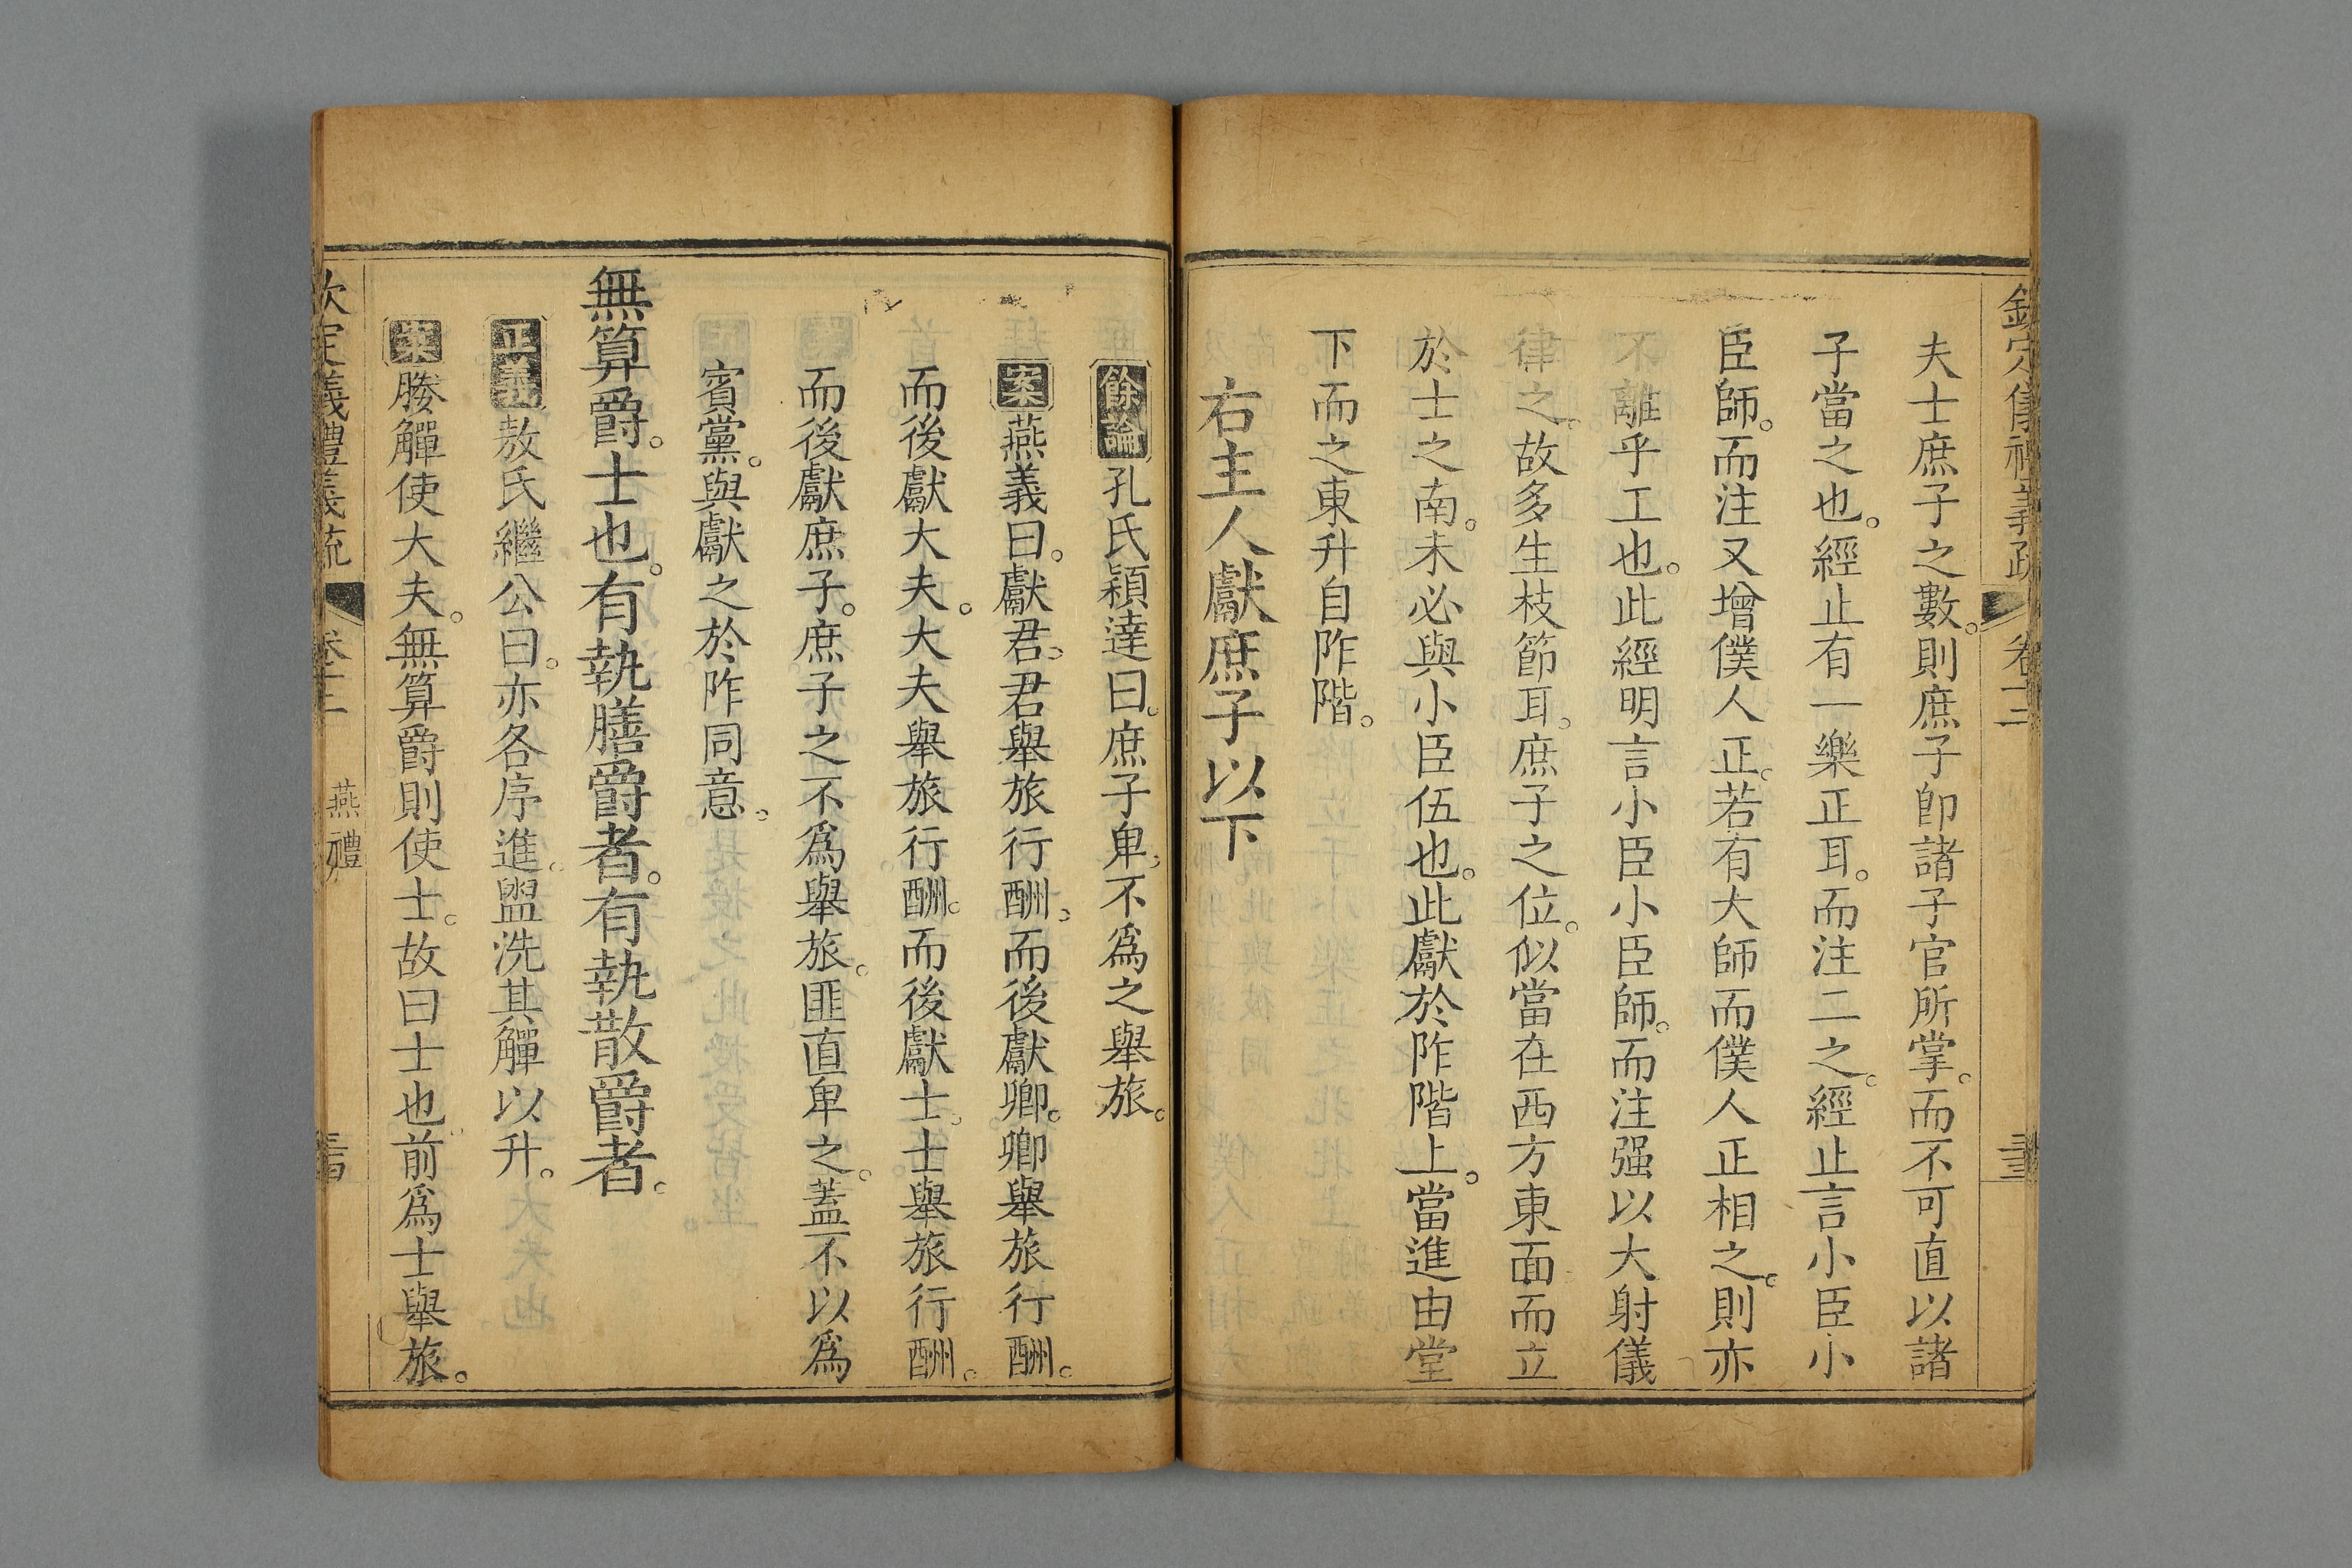 欽定儀禮義疏 卷十二
夫士庶子之數。則庶子卽諸子官所掌。而不可直以諸
子當之也。經止有一樂正耳。而注二之。經止言小臣小
臣師。而注又增僕人正。若有大師而僕人正相之。則亦
不離乎工也。此經明言小臣小臣師。而注强以大射儀
律之。故多生枝節耳。庶子之位。似當在西方東面而立
於士之南。未必與小臣伍也。此獻於阼階上。當進由堂
下而之東升自阼階。
右主人獻庶子以下
餘論孔氏穎達曰。庶子卑。不爲之舉旅。
案燕義曰。獻君。君舉旅行酬。而後獻卿。卿舉旅行酬。
而後獻大夫。大夫舉旅行酬。而後獻士。士舉旅行酬。
而後獻庶子。庶子之不爲舉旅。匪直卑之。蓋不以爲
賓黨。與獻之於阼同意。
無算爵。士也。有執膳爵者。有執散爵者。
正義敖氏繼公曰。亦各序進。盥洗其觶以升。
案媵觶使大夫。無算爵則使士。故曰士也前爲士舉旅。
欽定儀禮義疏 卷十二 燕禮